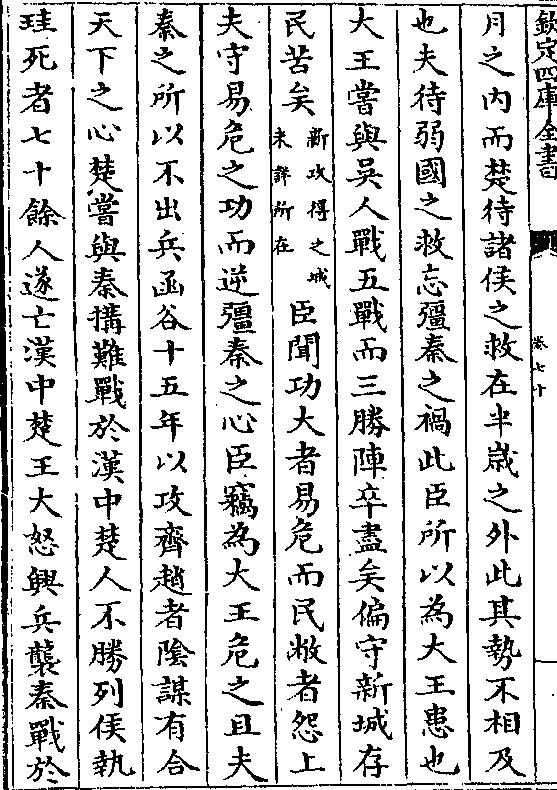 欽定四庫全書
卷七十
月之内而楚待諸侯之救在半歳之外此其勢不相及
也夫待弱國之救忘彊秦之禍此臣所以為大王患也
大王嘗與吳人戰五戰而三勝陣卒盡矣偏守新城存
民苦矣新攻得之城未詳所在臣聞功大者易危而民敝者怨上
夫守易危之功而逆彊秦之心臣竊為大王危之且夫
秦之所以不出兵函谷十五年以攻齊趙者隂謀有合
天下之心楚嘗與秦搆難戰於漢中楚人不勝列侯執
珪死者七十餘人遂亡漢中楚王大怒興兵襲秦戰於